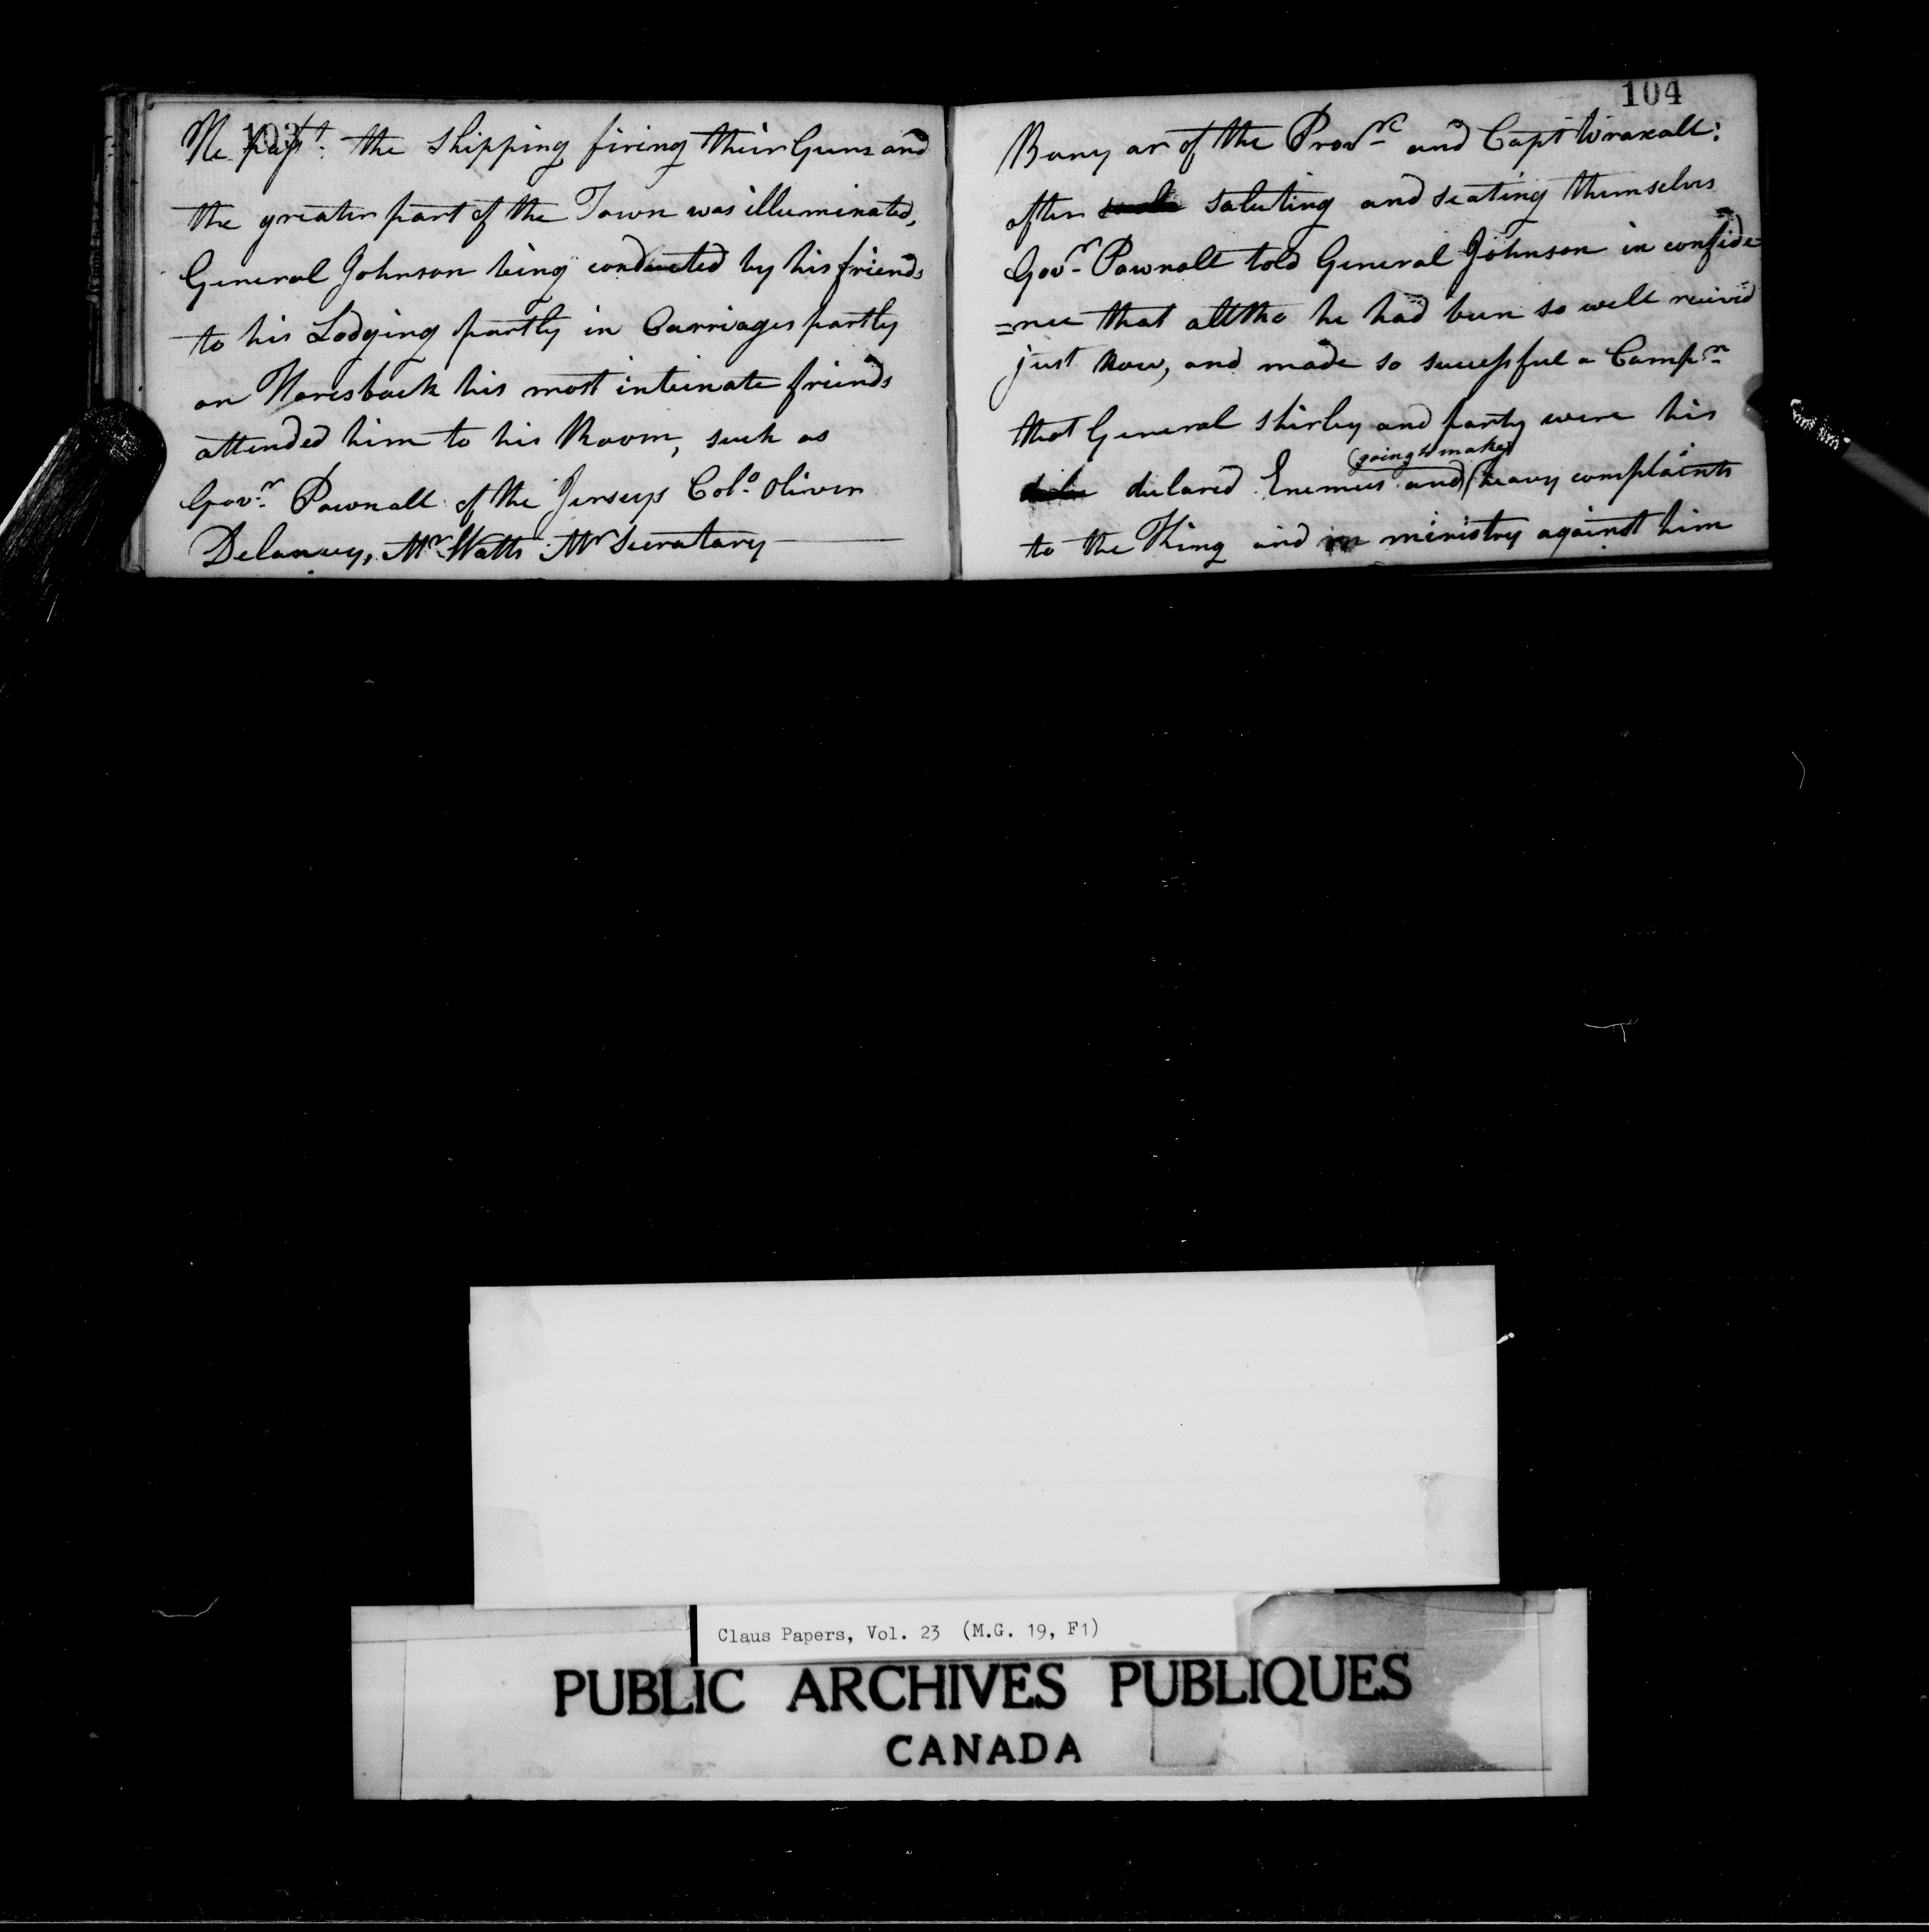 103
He pass't: the Shipping firing their Guns and
the greater part of the Town was illuminated,
General Johnson being conducted by his friends
to his Lodging partly in Carriages partly
on Horesback his most intimate friends
attended him to his Room, such as
Govr. Pownall of the Jerseys Colo. Oliver
Delancey, Mr Watts Mr Secratary
104
Bany ar of the Provce and Capt Wraxall:
after saluting and seating themselves
Govr. Pownall told General Johnson in confide
=nce that alltho he had been so well recived
just Now, and made so successful a Campn
that General Shirley and party were his
declared Enemies and (going to make) heavy complaints
to the King and ministry against him
Claus Papers, Vol. 23 (M.G. 19, F1)
PUBLIC ARCHIVES PUBLIQUES
CANADA